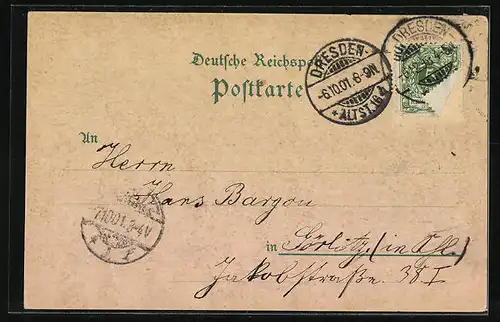 Deutsche Reichspo
Postkarte
DRESDEN-
-6.10.01.8-9N
* ALTST. 16 d
DRESDEN-
An
Herrn
Hans Bargou
7.10.01.3-4V
in Görlitz / in Schl.
Jakobstraße. 38 I